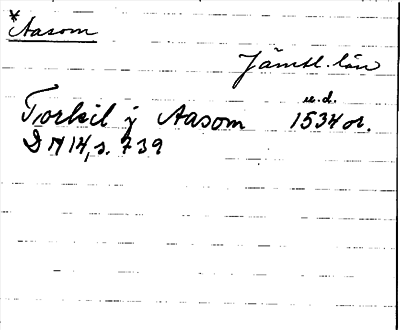 *Aasom
Jämtl. län
u.d.
Torkil j Aasom 1534 or.
DN 14, s. 739